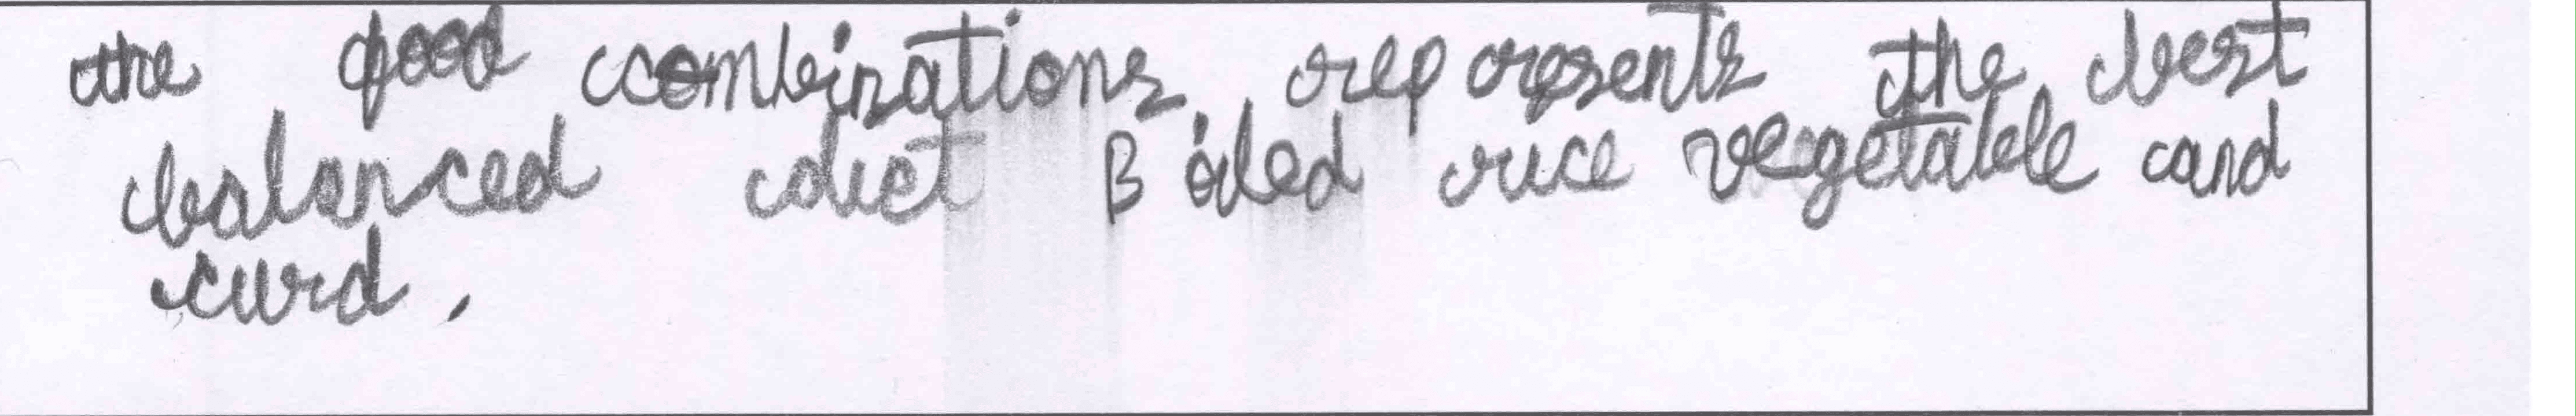 the food combinations represents the best
balanced diet Boiled rice vegetable and
curd.